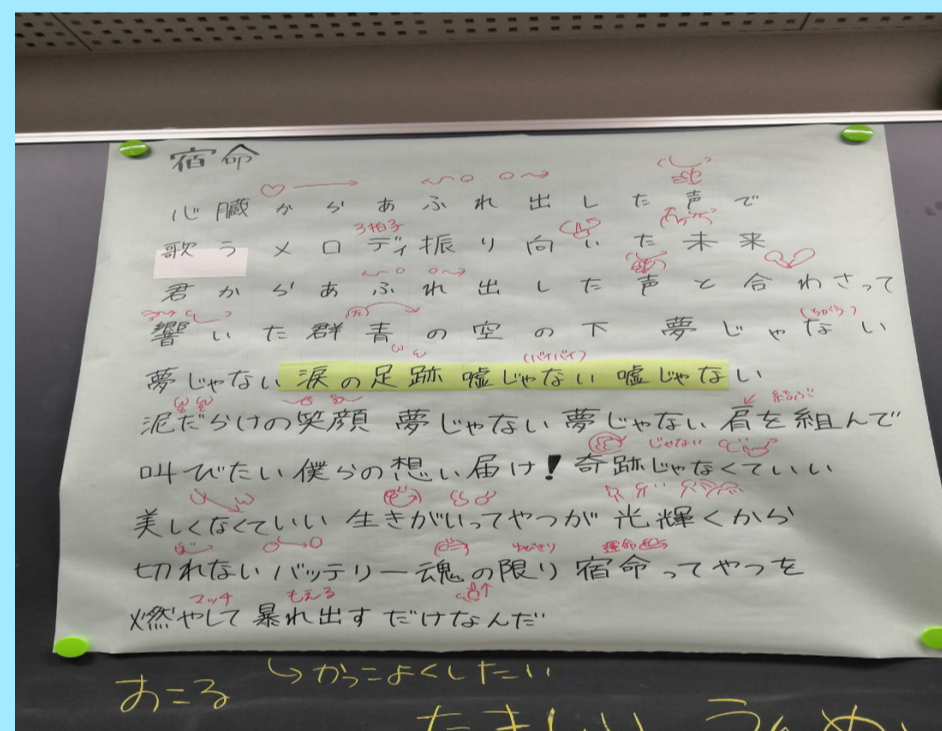 宿命
心臓からあふれ出した声で
3拍子
歌うメロディ振り向いた未来
君からあふれ出した声と合わさって
(ちがう)
響いた群青の空の下 夢じゃない
(バイバイ)
夢じゃない涙の足跡 嘘じゃない 嘘じゃない
泥だらけの笑顔 夢じゃない 夢じゃない 肩を組んで
じゃない
叫びたい僕らの想い届け!奇跡じゃなくていい
美しくなくていい 生きがいってやつが光輝くから
運命
切れないバッテリー魂の限り 宿命ってやつを
マッチ もえる
燃やして暴れ出すだけなんだ
かっこよくしたい
おこる